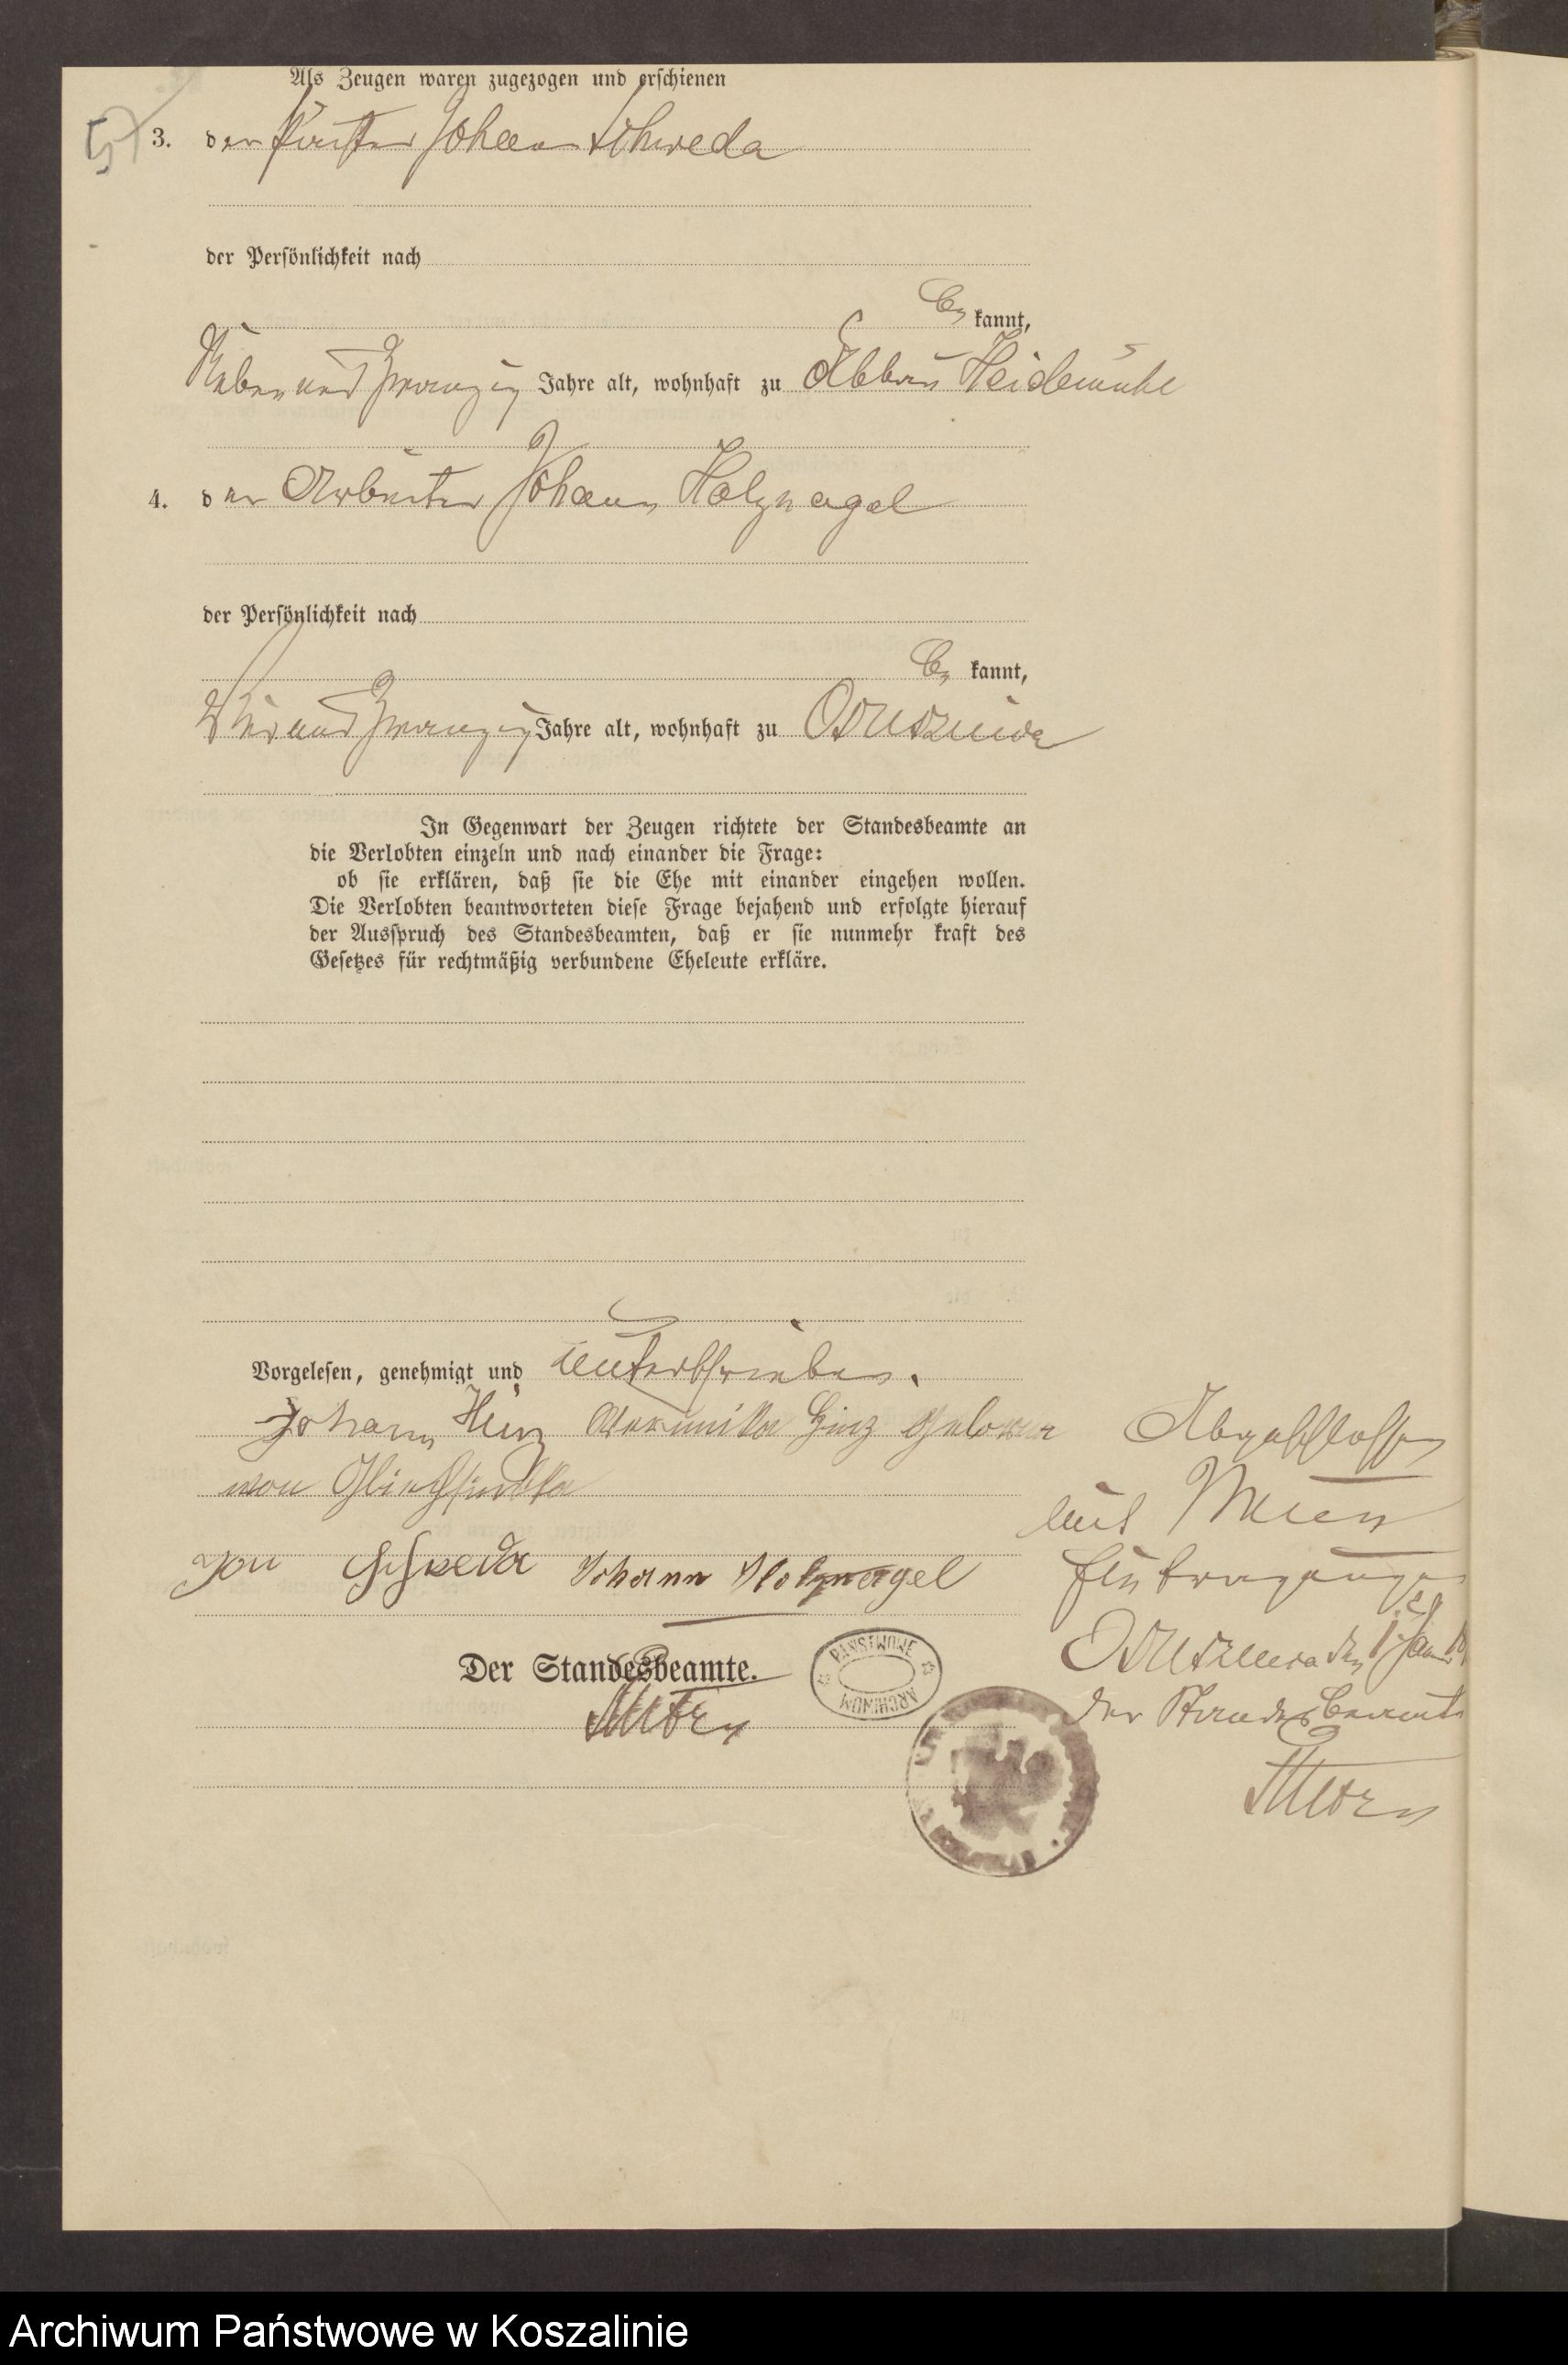 Als Zeugen waren zugezogen und erschienen
3. der Förster Johann Schweda
der Persönlichkeit nach
be kannt,
Sieben und zwanzig Jahre alt, wohnhaft zu Abbau Heidemühl
4. der Arbeiter Johann Holznagel
der Persönlichkeit nach
be kannt,
Vier und zwanzig Jahre alt, wohnhaft zu
In Gegenwart der Zeugen richtete der Standesbeamte an
die Verlobten einzeln und nach einander die Frage:
ob sie erklären, daß sie die Ehe mit einander eingehen wollen.
Die Verlobten beantworteten diese Frage bejahend und erfolgte hierauf
der Ausspruch des Standesbeamten, daß er sie nunmehr kraft des
Gesetzes für rechtmäßig verbundene Eheleute erkläre.
Vorgelesen, genehmigt und unterschrieben.
Johann Hinz Weronika Hinz geborne
von
Johann Holznagel
Der Standesbeamte.
Abgeschlossen
mit Neun
Eintragungen
der Standesbeamte
PAŃSTWOWE
ARCHIWUM
Archiwum Państwowe w Koszalinie